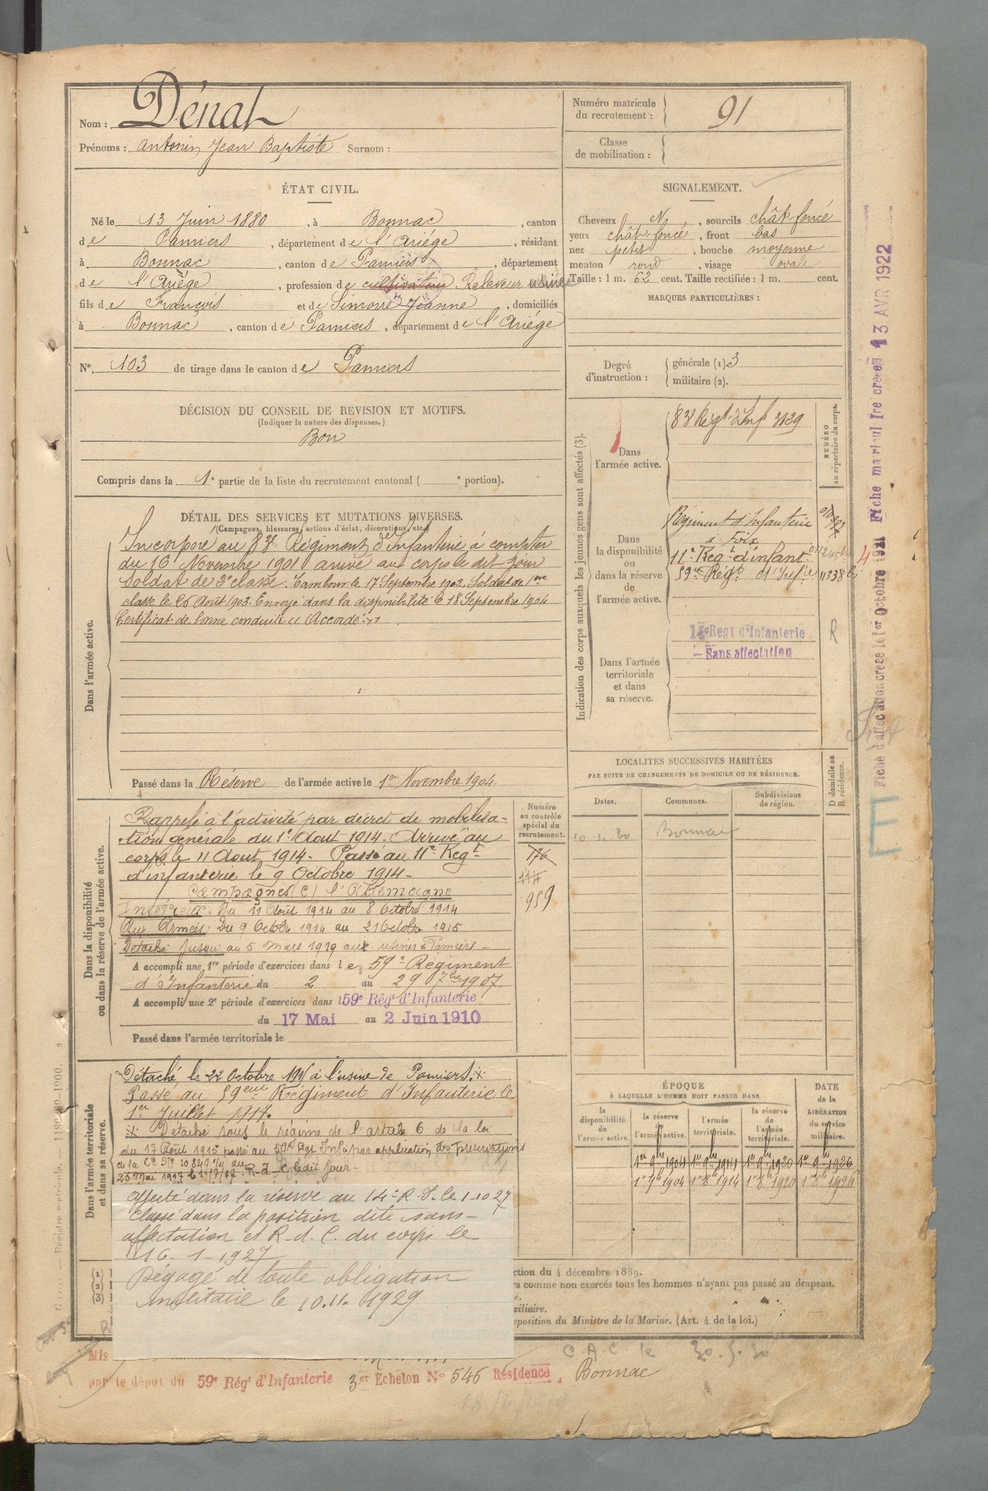 Nom : Dénat
Prénoms : Antonin Jean Baptiste Surnom :
Numéro matricule du recrutement : 91
Classe de mobilisation :
ÉTAT CIVIL.
Né le 13 Juin 1880, à Bonnac, canton
de Pamiers, département de l'Ariége, résidant
à Bonnac, canton de Pamiers, département
de l'Ariège, profession de cultivateur Releveur usine
fils de François et de Simorre Jeanne, domiciliés
à Bonnac, canton de Pamiers, département de l'Ariége
N° 103 de tirage dans le canton de Pamiers
SIGNALEMENT.
Cheveux N, sourcils chât foncé
yeux chât foncé, front bas
nez petit, bouche moyenne
menton rond, visage ovale
Taille : 1 m. 62 cent. Taille rectifiée : 1 m. cent.
MARQUES PARTICULIÈRES :
Degré d'instruction : générale (1) 3
militaire (2).
DÉCISION DU CONSEIL DE REVISION ET MOTIFS.
(Indiquer la nature des dispenses.)
Bon
Compris dans la 1e partie de la liste du recrutement cantonal ( e portion).
DÉTAIL DES SERVICES ET MUTATIONS DIVERSES.
(Campagnes, blessures, actions d'éclat, décorations, etc.)
Dans l'armée active.
Incorporé au 83e Régiment d'Infanterie à compter
du 16 Novembre 1901 arrivé au corps le dit jour
Soldat de 2e classe. Tambour le 17 Septembre 1902. Soldat de 1ere
classe le 26 Août 1903. Envoyé dans la disponibilité le 18 Septembre 1904
Certificat de bonne conduite Accordé
Passé dans la Réserve de l'armée active le 1er Novembre 1904.
Indication des corps auxquels les jeunes gens sont affectés (3).
NUMÉRO au répertoire du corps.
Dans l'armée active.
83e Régt d'Inf 3129
Dans la disponibilité ou dans la réserve de l'armée active.
Régiment d'Infanterie
à Foix
11e Régt d'infant
59e Régt d'Infie
Dans l'armée territoriale et dans sa réserve.
14e Regt d'Infanterie
— Sans affectation
R
Fiche d'affectation créée le 1er Octobre 1921 Fiche matricule créée 13 AVR 1922
E
LOCALITÉS SUCCESSIVES HABITÉES
PAR SUITE DE CHANGEMENTS DE DOMICILE OU DE RÉSIDENCE.
Dates. Communes. Subdivisions de région. D domicile ou R résidence.
Bonnac
Dans la disponibilité ou dans la réserve de l'armée active.
Numéro au contrôle spécial du recrutement.
959
Rappelé à l'activité par décret de mobilisa-
tion générale du 1er Août 1914. Arrivé au
corps le 11 Août 1914. Passé au 11e Régt
d'infanterie le 9 Octobre 1914.
Campagnes C) l'Allemagne
Intérieur: Du 11 Août 1914 au 8 Octobre 1914
Aux Armées: Du 9 Octobre 1914 au 21 Octobre 1915
Détaché jusqu'au 5 mars 1919 aux usines Pamiers
A accompli une 1re période d'exercices dans le 59e Régiment
d'Infanterie du 2 au 29 7bre 1907
A accompli une 2e période d'exercices dans l 59e Régt d'Infanterie
du 17 Mai au 2 Juin 1910
Passé dans l'armée territoriale le
Dans l'armée territoriale et dans sa réserve.
Détaché le 22 Octobre à l'usine de Pamiers.
Passé au 59eme Régiment d'Infanterie le
1er Juillet 1917.
Détaché sous le régime de l'article 6 de la loi
du 17 Août 1915 passé au 59e Rgt Inf par application des prescriptions
de la
R.d.C. dudit jour
Affecté dans la réserve au 14e R.I. le 1.10.27
Classé dans la position dite sans
affectation et R.d.C. du corps le
16. 1. 1927
Dégagé de toute obligation
militaire le 10.11.1929
ÉPOQUE
À LAQUELLE L'HOMME DOIT PASSER DANS
DATE DE LA LIBÉRATION DU SERVICE militaire.
la disponibilité de l'armée active. la réserve de l'armée active. l'armée territoriale. la réserve de l'armée territoriale.
1er 9bre 1904 1er 9bre 1914 1er 9bre 1920 1er 9bre 1926
(1)
(2)
(3)
ction du 4 décembre 1889.
comme non exercés tous les hommes n'ayant pas passé au drapeau.
xiliaire.
sposition du Ministre de la Marine. (Art. 4 de la loi.)
Mis
C.A.C le 30.5.30
par le dépôt du 59e Régt d'Infanterie 3er Echelon No 546 Résidence Bonnac